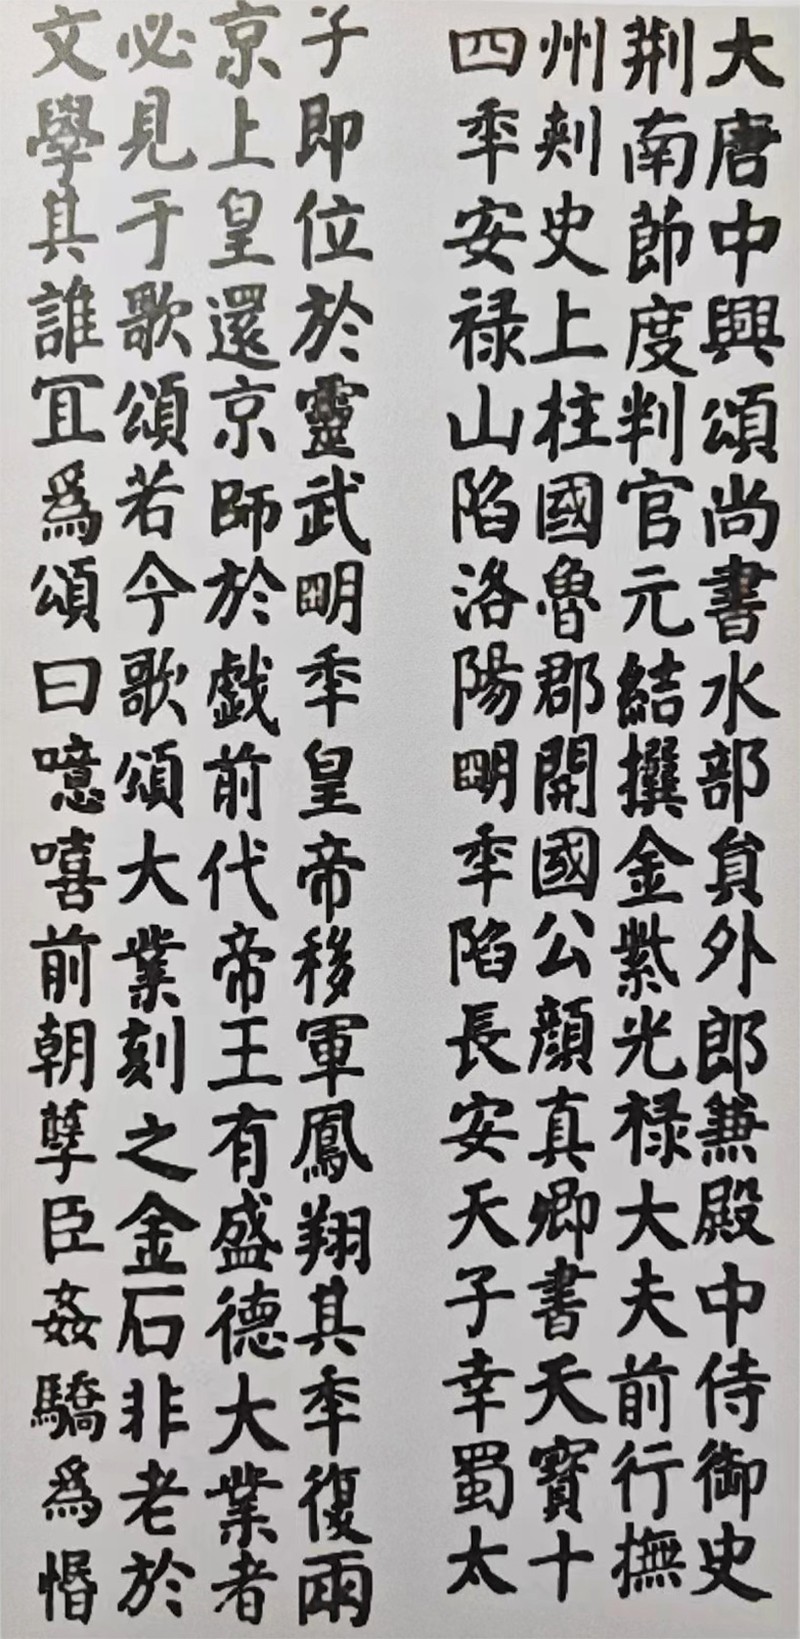 大唐中興頌尚書水部員外郎兼殿中侍御史
荆南節度判官元結撰金紫光禄大夫前行撫
州刺史上柱國魯郡開國公顏真卿書天寶十
四年安禄山陷洛陽明年陷長安天子幸蜀太
子即位於靈武明年皇帝移軍鳳翔其年復兩
京上皇還京師於戲前代帝王有盛德大業者
必見于歌頌若今歌頌大業刻之金石非老於
文學其誰宜為頌曰噫嘻前朝孽臣姦驕為惛